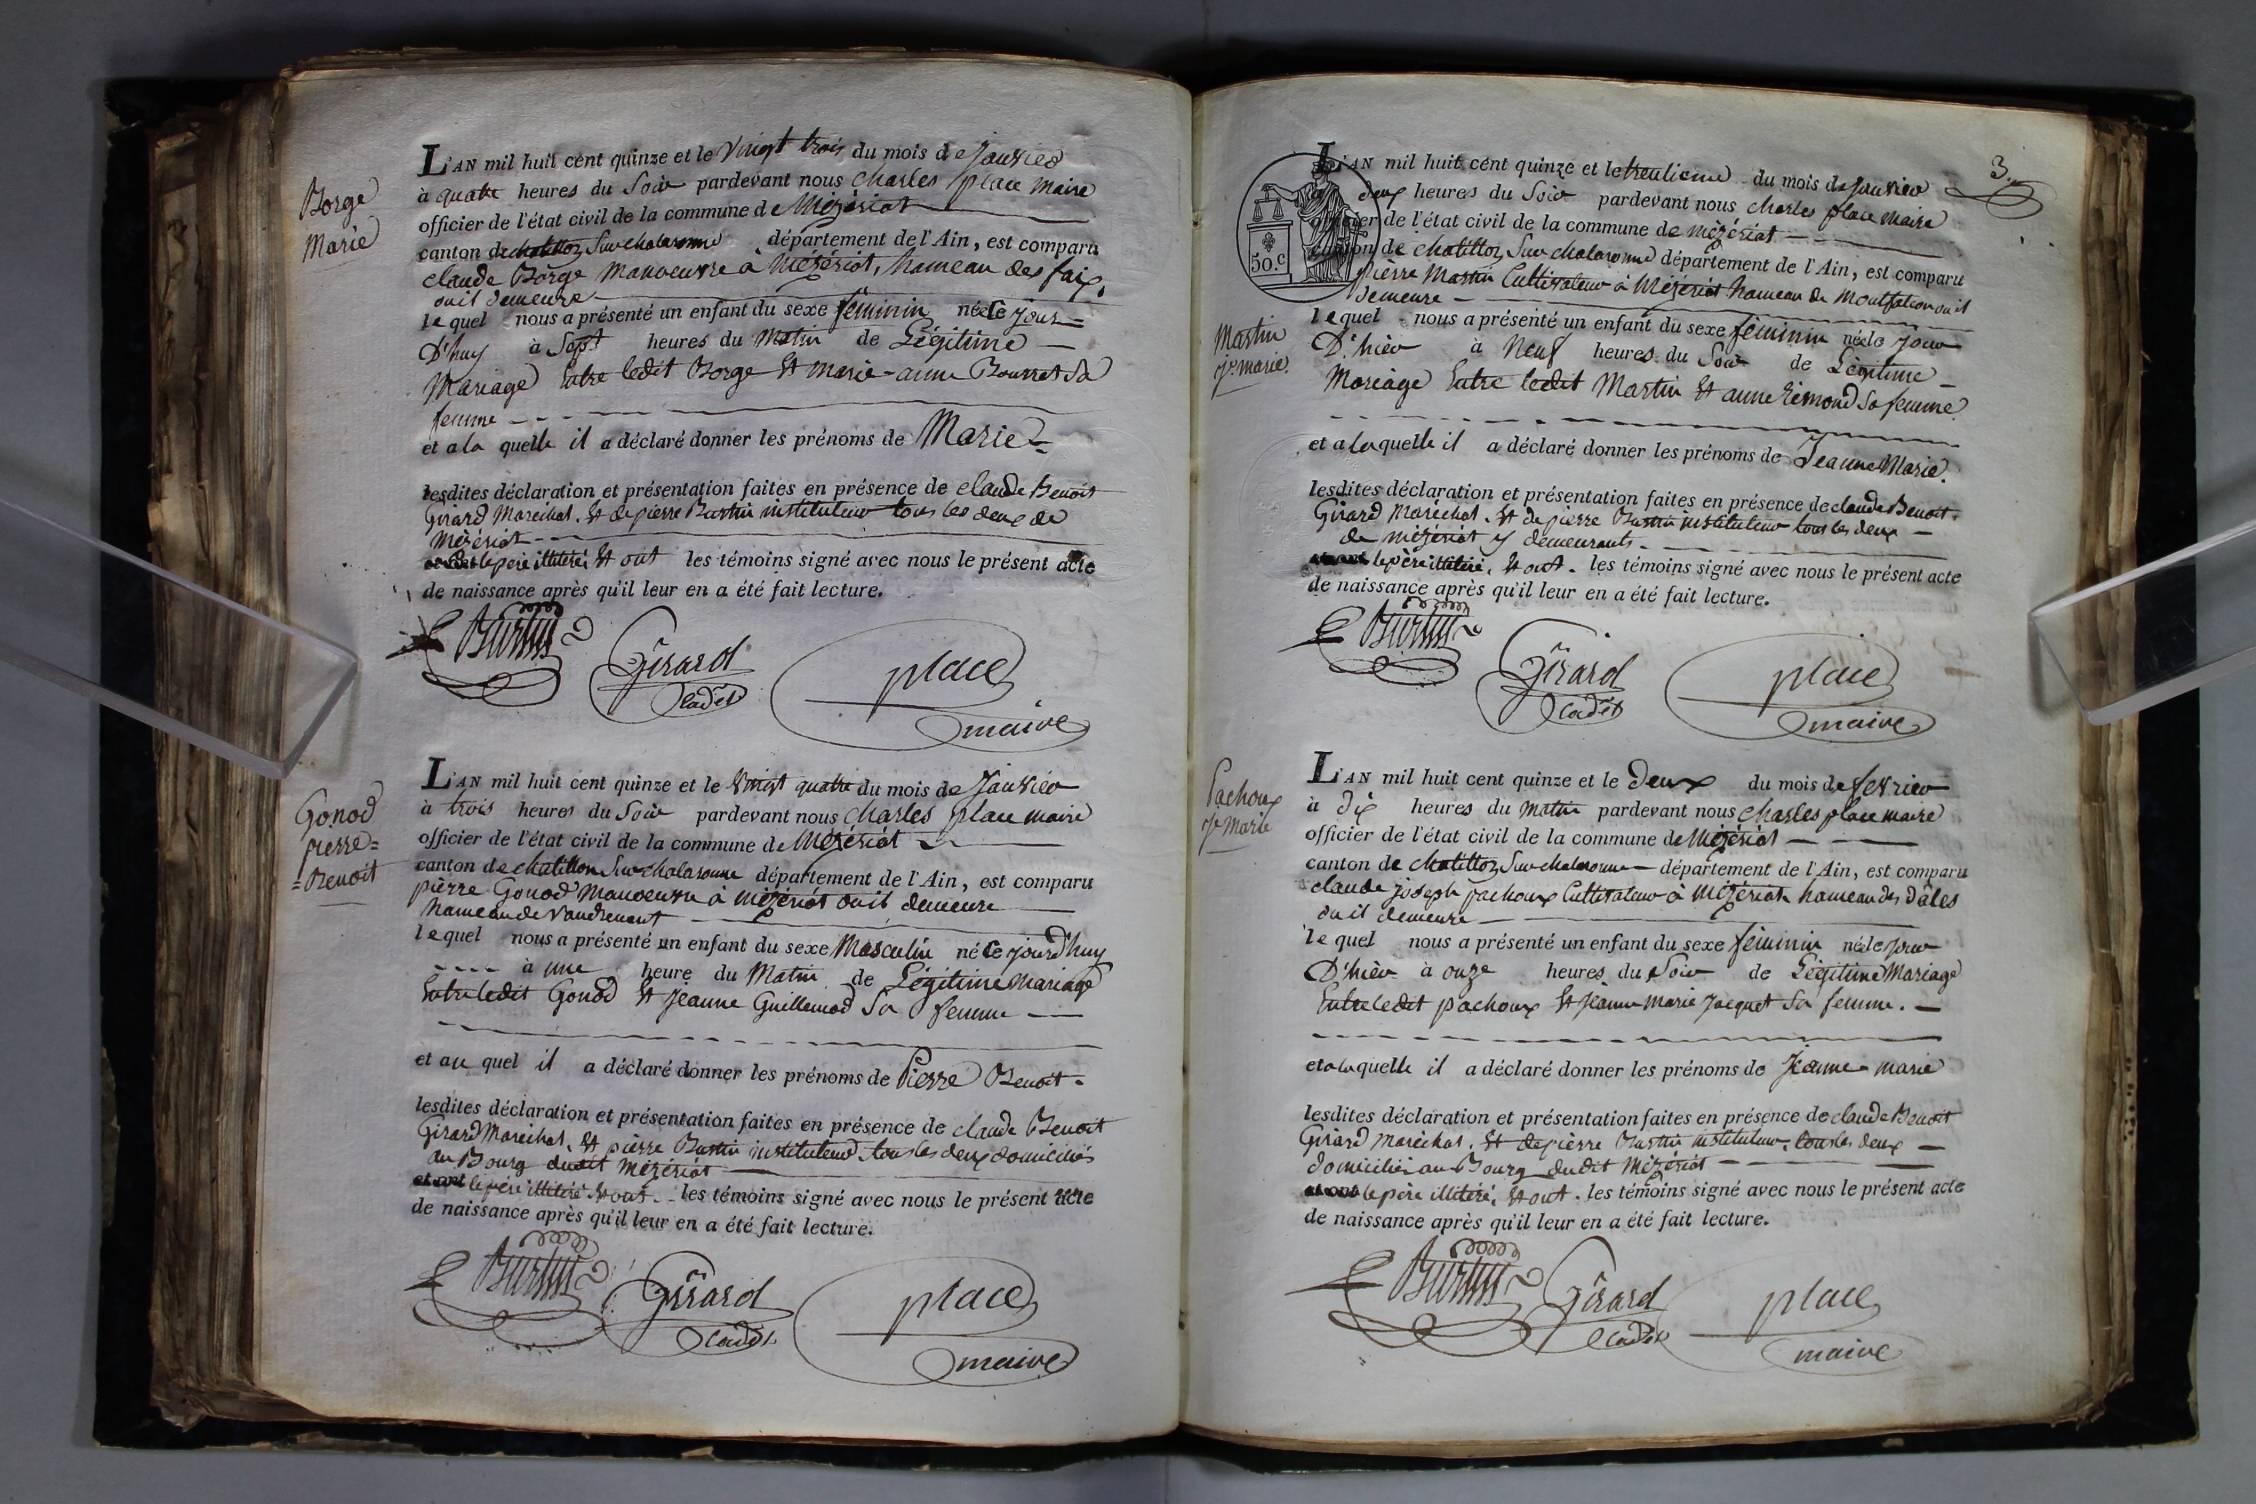 Borge
Marie
L'AN mil huit cent quinze et le vingt trois du mois de janvier
à quatre heures du Soir pardevant nous charles place maire
officier de l'état civil de la commune de Mézériat
canton de chatillon Sur chalaronne département de l'Ain, est comparu
claude Borge manoeuvre à Mézériat, hameau des faix,
ou il demeure
lequel nous a présenté un enfant du sexe féminin né le jour
D'huy à Sept heures du Matin de Légitime
Mariage Entre ledit Borge Et marie-anne Bourret Sa
femme
et a la quelle il a déclaré donner les prénoms de Marie
lesdites déclaration et présentation faites en présence de claude Benoit
Girard Maréchal, Et de pierre Burtin instituteur tous les deux de
Mézériat
le père illitéré, Et ont les témoins signé avec nous le présent acte
de naissance après qu'il leur en a été fait lecture.
Burtin Girard place
cadet maire
Gonod
pierre=
=Benoit
L'AN mil huit cent quinze et le vingt quatre du mois de janvier
à trois heures du Soir pardevant nous charles place maire
officier de l'état civil de la commune de Mézériat
canton de chatillon Sur chalaronne département de l'Ain, est comparu
pierre Gonod manoeuvre à mézériat ou il demeure
hameau de Vaudrenant
lequel nous a présenté un enfant du sexe Masculin né Ce jourd'huy
à une heure du Matin de Légitime mariage
Entre ledit Gonod Et jeanne Guillemod Sa femme
et au quel il a déclaré donner les prénoms de Pierre Benoit
lesdites déclaration et présentation faites en présence de claude Benoit
Girard Maréchal, Et pierre Burtin instituteur, tous les deux domiciliés
au Bourg dudit mézériat
et ont le père illitéré Et ont les témoins signé avec nous le présent acte
de naissance après qu'il leur en a été fait lecture.
Burtin Girard place
cadet maire
3
50.c
Martin
je marie
L'AN mil huit cent quinze et le trentieme du mois de janvier
deux heures du Soir pardevant nous charles place maire
officier de l'état civil de la commune de mézériat
canton de chatillon Sur chalaronne département de l'Ain, est comparu
pierre Martin Cultivateur à Mézériat hameau de montfalcon ou il
demeure
lequel nous a présenté un enfant du sexe féminin né le jour
D'hier à Neuf heures du Soir de Légitime
Mariage Entre ledit Martin Et anne Rémond Sa femme
et a la quelle il a déclaré donner les prénoms de Jeanne Marie.
lesdites déclaration et présentation faites en présence de claude Benoit
Girard Maréchal, Et de pierre Burtin instituteur tous les deux
de mézériat y demeurants
le père illitéré, Et ont les témoins signé avec nous le présent acte
de naissance après qu'il leur en a été fait lecture.
Burtin Girard place
cadet maire
Pachoux
je Marie
L'AN mil huit cent quinze et le deux du mois de fevrier
à dix heures du matin pardevant nous charles place maire
officier de l'état civil de la commune de Mézériat
canton de chatillon Sur chalaronne département de l'Ain, est comparu
claude joseph pachoux Cultivateur à Mézériat hameau des dâles
ou il demeure
lequel nous a présenté un enfant du sexe féminin né le jour
D'hièr à onze heures du Soir de Légitime Mariage
Entre ledit pachoux Et jeanne marie jacquet Sa femme.
et a la quelle il a déclaré donner les prénoms de Jeanne marie
lesdites déclaration et présentation faites en présence de claude Benoit
Girard maréchal, Et de pierre Burtin instituteur, tous les deux
domiciliés au Bourg dudit Mézériat
et ont le père illitéré, Et ont les témoins signé avec nous le présent acte
de naissance après qu'il leur en a été fait lecture.
Burtin Girard place
cadet maire